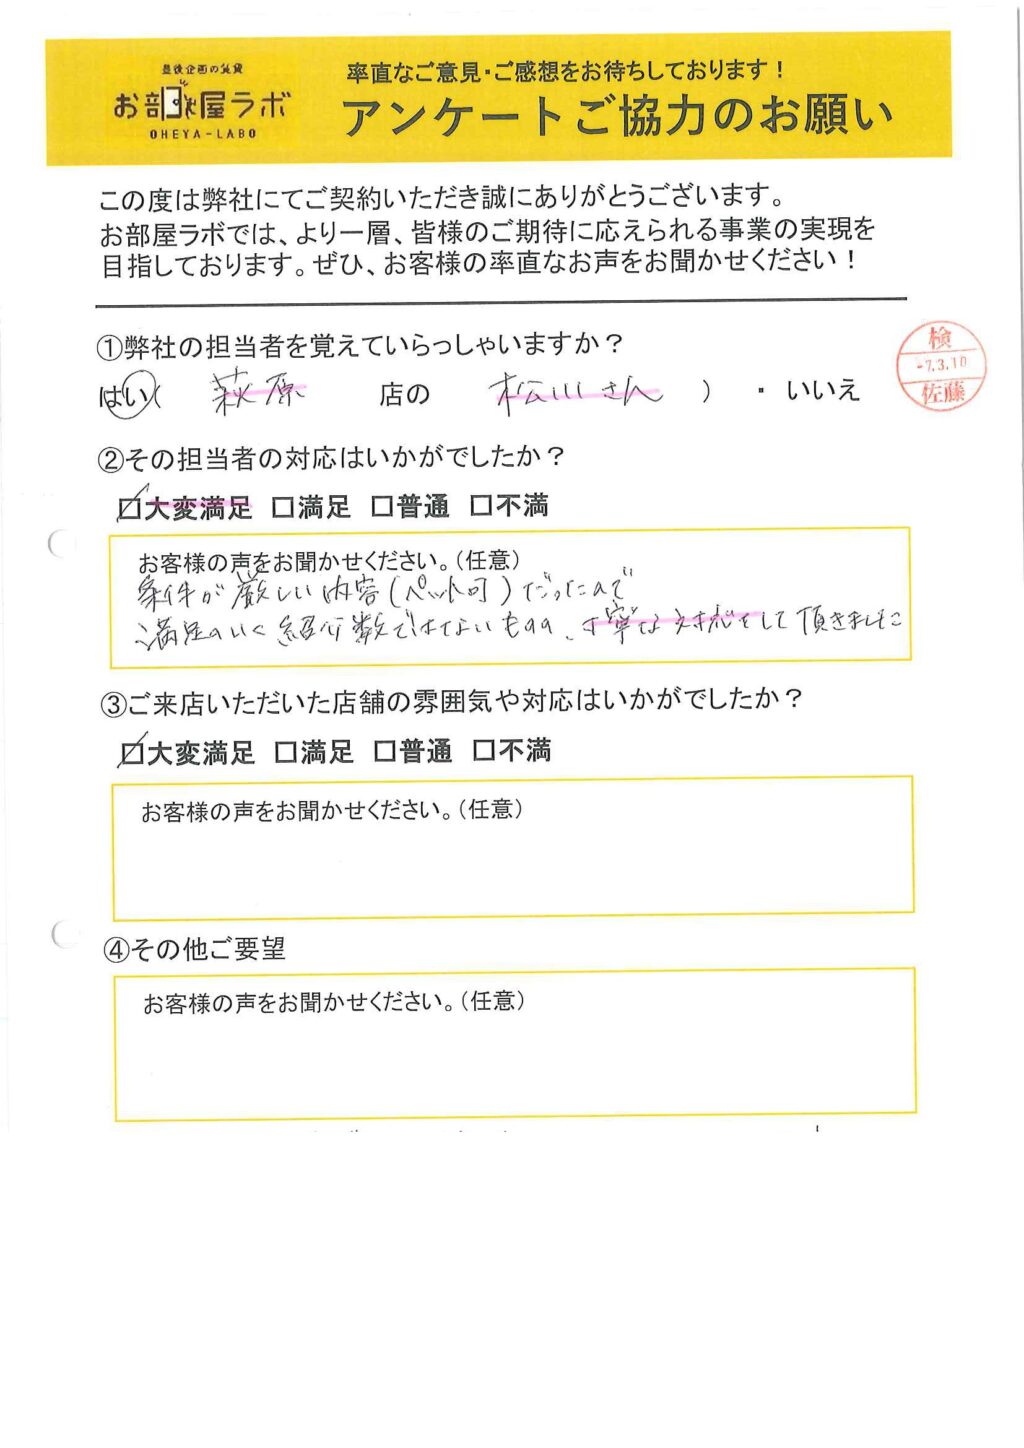 豊後企画の賃貸
お部屋ラボ
OHEYA-LABO
率直なご意見・ご感想をお待ちしております！
アンケートご協力のお願い
この度は弊社にてご契約いただき誠にありがとうございます。
お部屋ラボでは、より一層、皆様のご期待に応えられる事業の実現を
目指しております。ぜひ、お客様の率直なお声をお聞かせください！
①弊社の担当者を覚えていらっしゃいますか？
検
-7.3.10
佐藤
はい（ 萩原 店の 松川さん ） ・ いいえ
②その担当者の対応はいかがでしたか？
☑大変満足 □満足 □普通 □不満
お客様の声をお聞かせください。（任意）
条件が厳しい内容（ペット可）だったので
満足のいく紹介数ではないものの、丁寧な対応をして頂きました
③ご来店いただいた店舗の雰囲気や対応はいかがでしたか？
☑大変満足 □満足 □普通 □不満
お客様の声をお聞かせください。（任意）
④その他ご要望
お客様の声をお聞かせください。（任意）